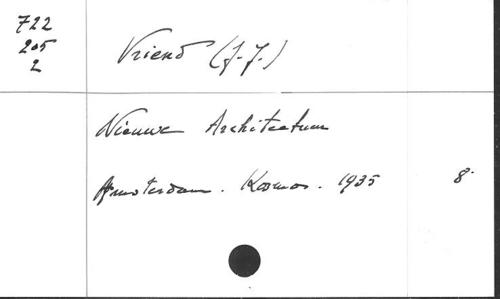 722
205
2
Vriend (J.J.)
Nieuwe Architectuur
Amsterdam. Kosmos. 1935
8°